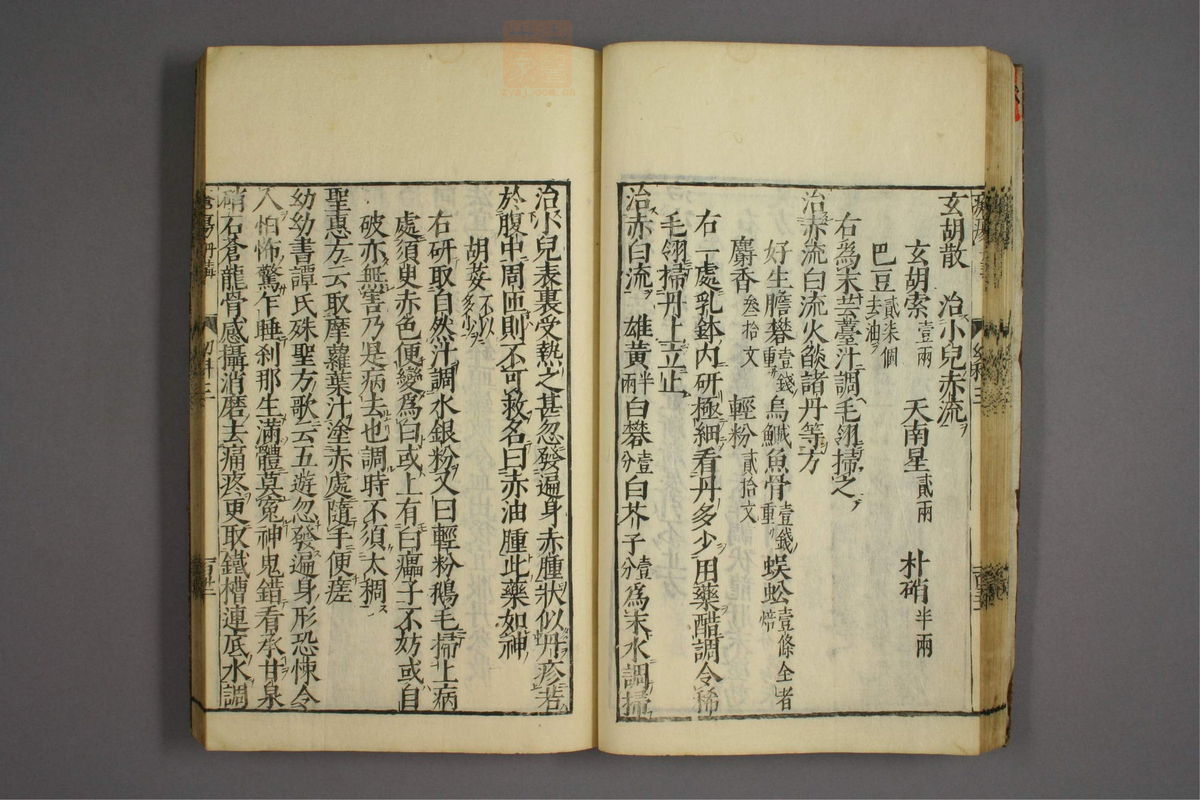 玄胡散　治小兒赤流
玄胡索壹兩　天南星貳兩　朴硝半兩
巴豆貳柒個去油
右爲末芸薹汁調毛翎掃之
治赤流白流火燄諸丹等方
好生膽礬壹錢重　烏鰂魚骨壹錢重　蜈蚣壹條全者焙
麝香叁拾文　輕粉貳拾文
右一處乳鉢内研極細看丹多少用藥醋調令稀
毛翎掃丹上立止
治赤白流　雄黃半兩白礬壹分白芥子壹分爲末水調掃
治小兒表裏受熱之甚忽發遍身赤腫狀似丹疹若
於腹中周匝則不可救名曰赤油腫此藥如神
胡荽不以多少
右研取自然汁調水銀粉又曰輕粉鵝毛掃上病
處須臾赤色便變爲白或上有白癟子不妨或自
破亦無害乃是病去也調時不須太稠
聖惠方云取摩蘿葉汁塗赤處隨手便瘥
幼幼書譚氏殊聖方歌云五遊忽發遍身形恐悚令
人怕怖驚乍睡刹那生滿體莫寃神鬼錯看承甘泉
硝石蒼龍骨感攝消磨去痛疼更取鐵槽連底水調